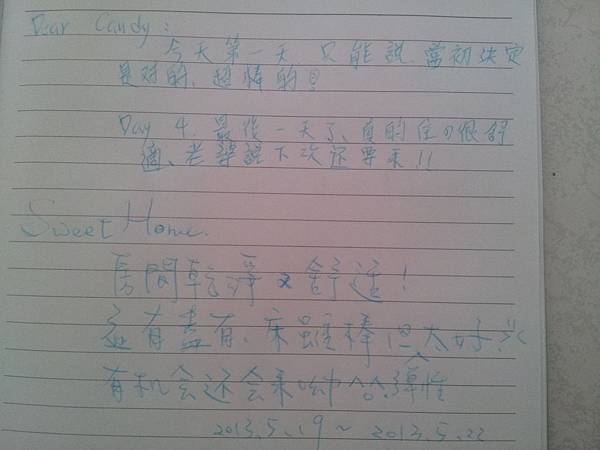 Dear Candy:
今天第一天,只能說,當初決定
是对的,超棒的!
Day 4. 最後一天了、真的住的很舒
適、老婆說下次还要来!!
Sweet Home.
房間乾淨又舒适!
应有盡有,床雖棒但太好
有机会还会来呦^^弹性
2013.5.19 ~ 2013.5.22